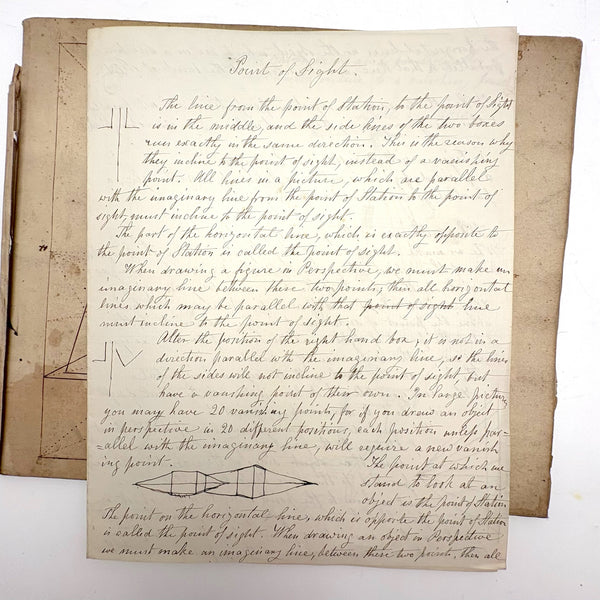 Point of Sight.
The line from the point of Station, to the point of Sight
is in the middle, and the side lines of the two boxes
run exactly in the same direction. This is the reason why
they incline to the point of sight, instead of a vanishing
point. All lines in a picture, which are parallel
with the imaginary line from the point of Station to the point of
sight, must incline to the point of sight.
The part of the horizontal line, which is exactly opposite to
the point of Station is called the point of sight.
When drawing a figure in Perspective, we must make an
imaginary line between these two points, then all horizontal
lines which may be parallel with that point of sight line
must incline to the point of sight.
Alter the position of the right hand box, it is not in a
direction parallel with the imaginary line, so the lines
of the sides will not incline to the point of sight, but
have a vanishing point of their own. In large pictures
you may have 20 vanishing points, for if you draw an object
in perspective in 20 different positions, each position unless par-
-allel with the imaginary line, will require a new vanish
ing point.
The point at which we
stand to look at an
object is the point of Station
The point on the horizontal line, which is opposite the point of Station
is called the point of sight. When drawing an object in Perspective
we must make an imaginary line, between these two points, then all